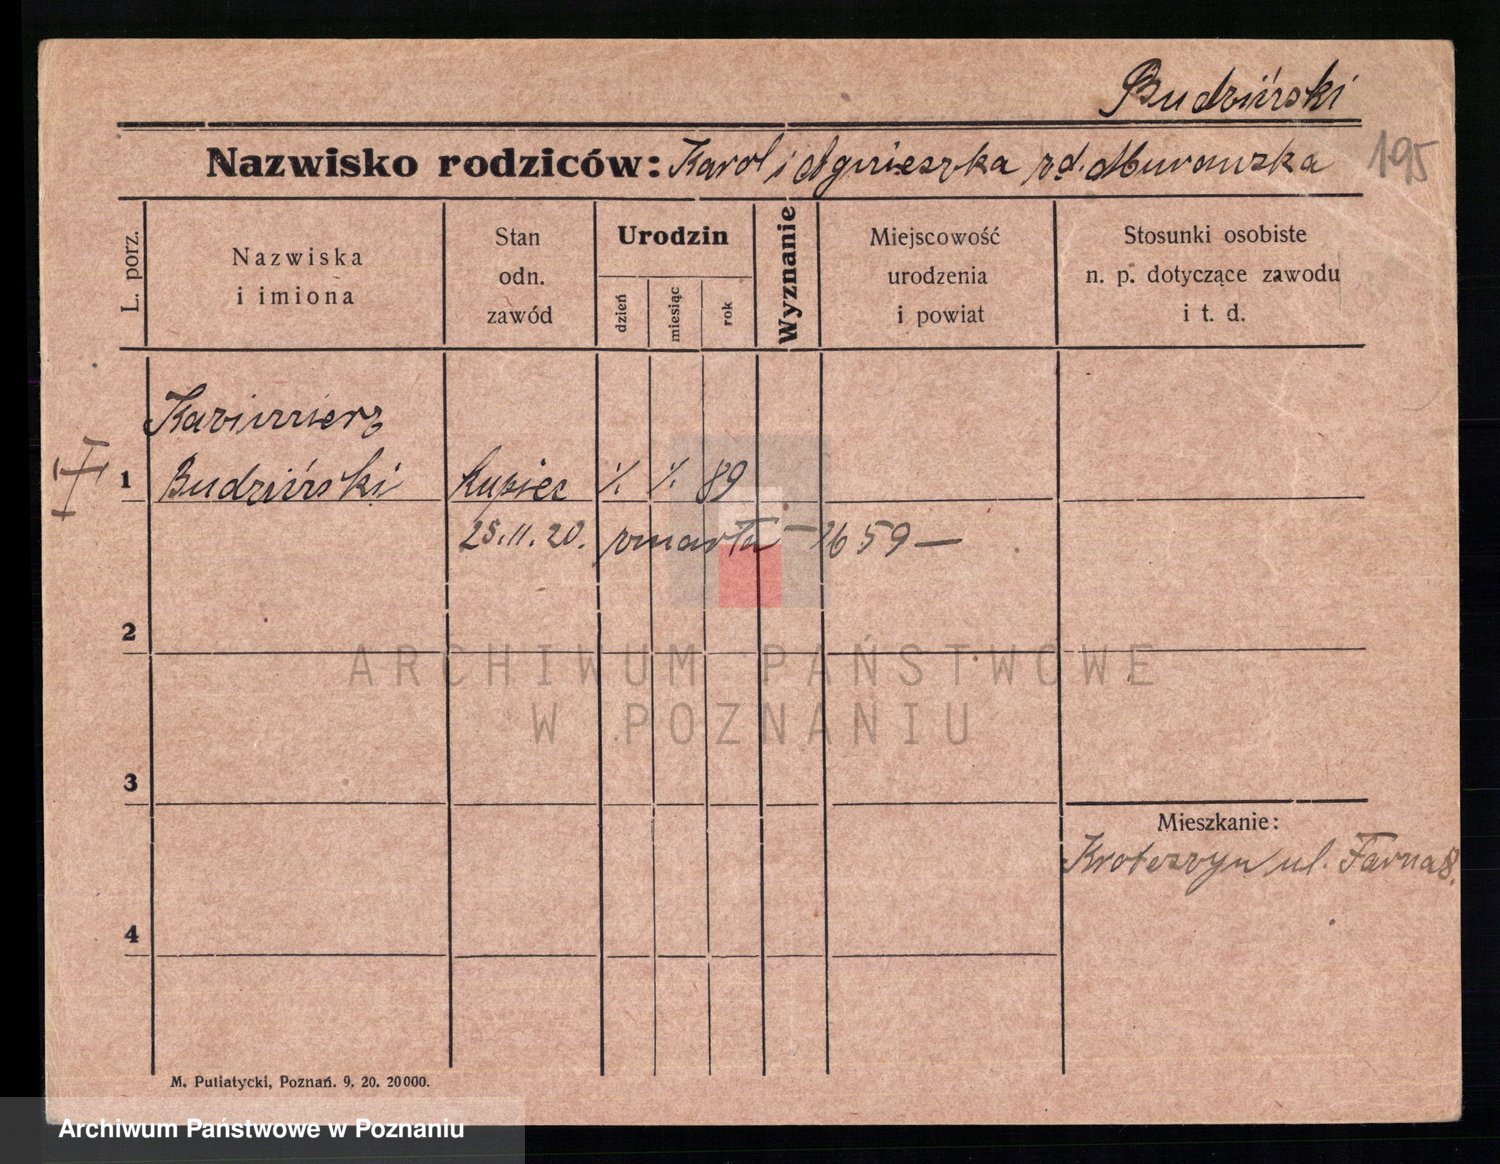 Budziński
Nazwisko rodziców: Karol i Agnieszka rd. Murawska 195
L. porz.
Nazwiska
i imiona
Stan
odn.
zawód
Urodzin
dzień
miesiąc
rok
Wyznanie
Miejscowość
urodzenia
i powiat
Stosunki osobiste
n. p. dotyczące zawodu
i t. d.
Kazimierz
1 Budziński Kupiec ./. ./. 89
25.11.20. zmarła - 1659 —
2
3
Mieszkanie:
Krotoszyn ul. Farna 8.
4
M. Putiatycki, Poznań. 9. 20. 20000.
ARCHIWUM PAŃSTWOWE
W POZNANIU
Archiwum Państwowe w Poznaniu